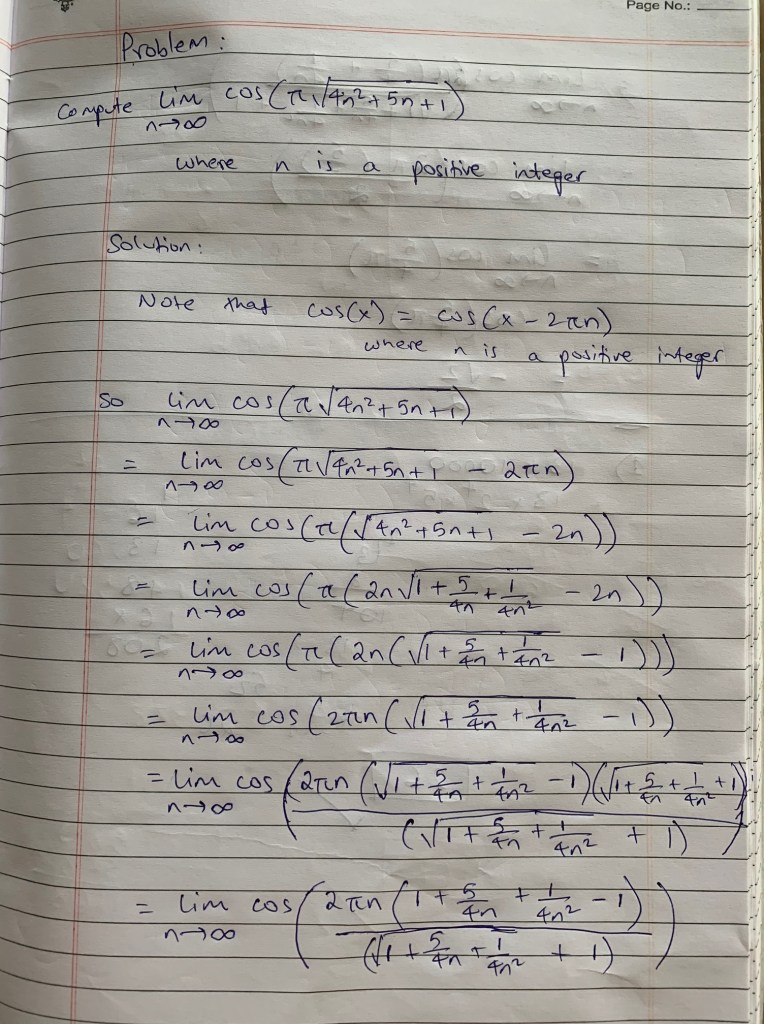 Page No.:
Problem :
Compute lim n→∞ cos(π√(4n²+5n+1))
where n is a positive integer
Solution :
Note that cos(x) = cos(x - 2πn)
where n is a positive integer
So lim n→∞ cos(π√(4n²+5n+1))
= lim n→∞ cos(π√(4n²+5n+1) - 2πn)
= lim n→∞ cos(π(√(4n²+5n+1) - 2n))
= lim n→∞ cos(π(2n√(1 + 5/4n + 1/4n²) - 2n))
= lim n→∞ cos(π(2n(√(1 + 5/4n + 1/4n²) - 1)))
= lim n→∞ cos(2πn(√(1 + 5/4n + 1/4n²) - 1))
= lim n→∞ cos(2πn(√(1 + 5/4n + 1/4n²) - 1)(√(1 + 5/4n + 1/4n²) + 1) / (√(1 + 5/4n + 1/4n²) + 1))
= lim n→∞ cos(2πn(1 + 5/4n + 1/4n² - 1) / (√(1 + 5/4n + 1/4n²) + 1))